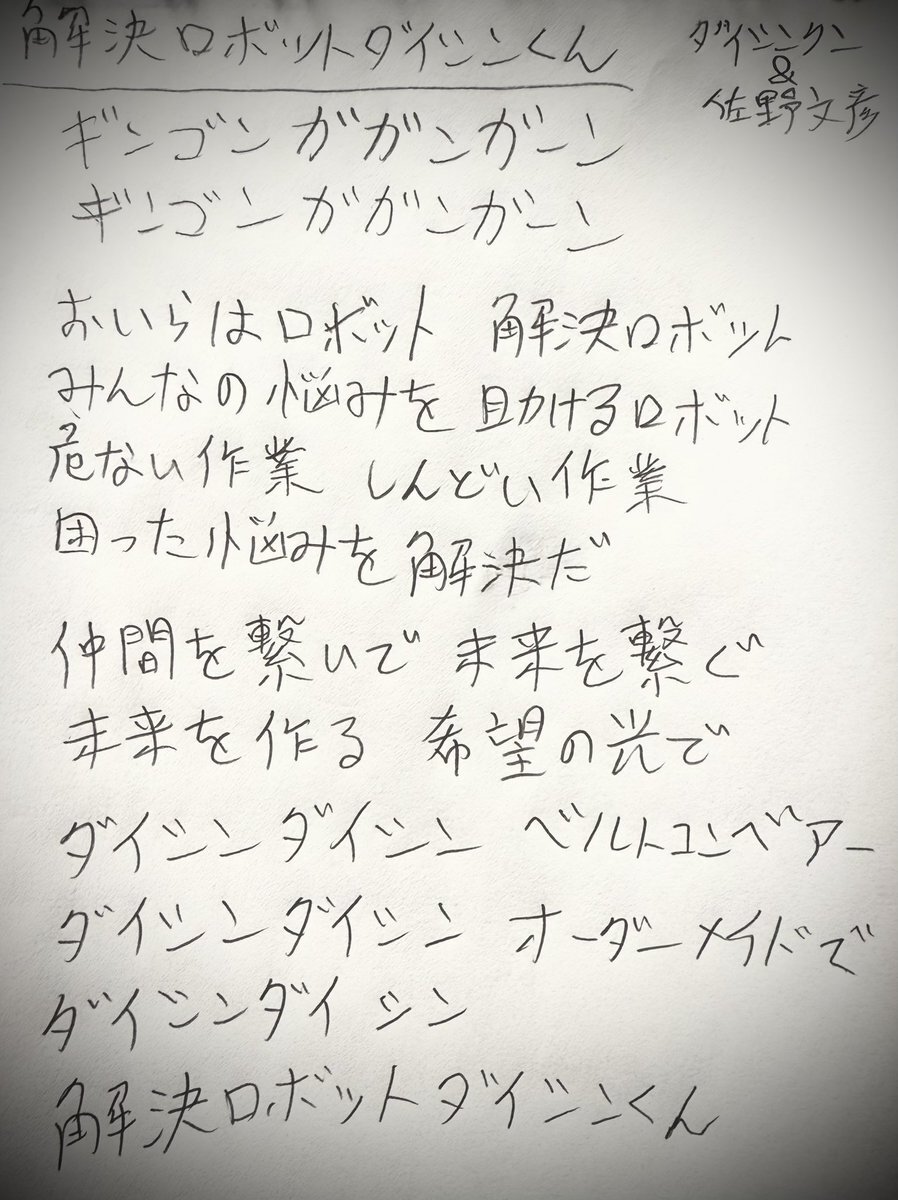 解決ロボットダイシンくん
ダイシンクン
&
佐野文彦
ギンゴンガガンガーン
ギンゴンガガンガーン
おいらはロボット 解決ロボット
みんなの悩みを助けるロボット
危ない作業 しんどい作業
困った悩みを解決だ
仲間を繋いで 未来を繋ぐ
未来を作る 希望の光で
ダイシンダイシン ベルトコンベアー
ダイシンダイシン オーダーメイドで
ダイシンダイシン
解決ロボットダイシンくん